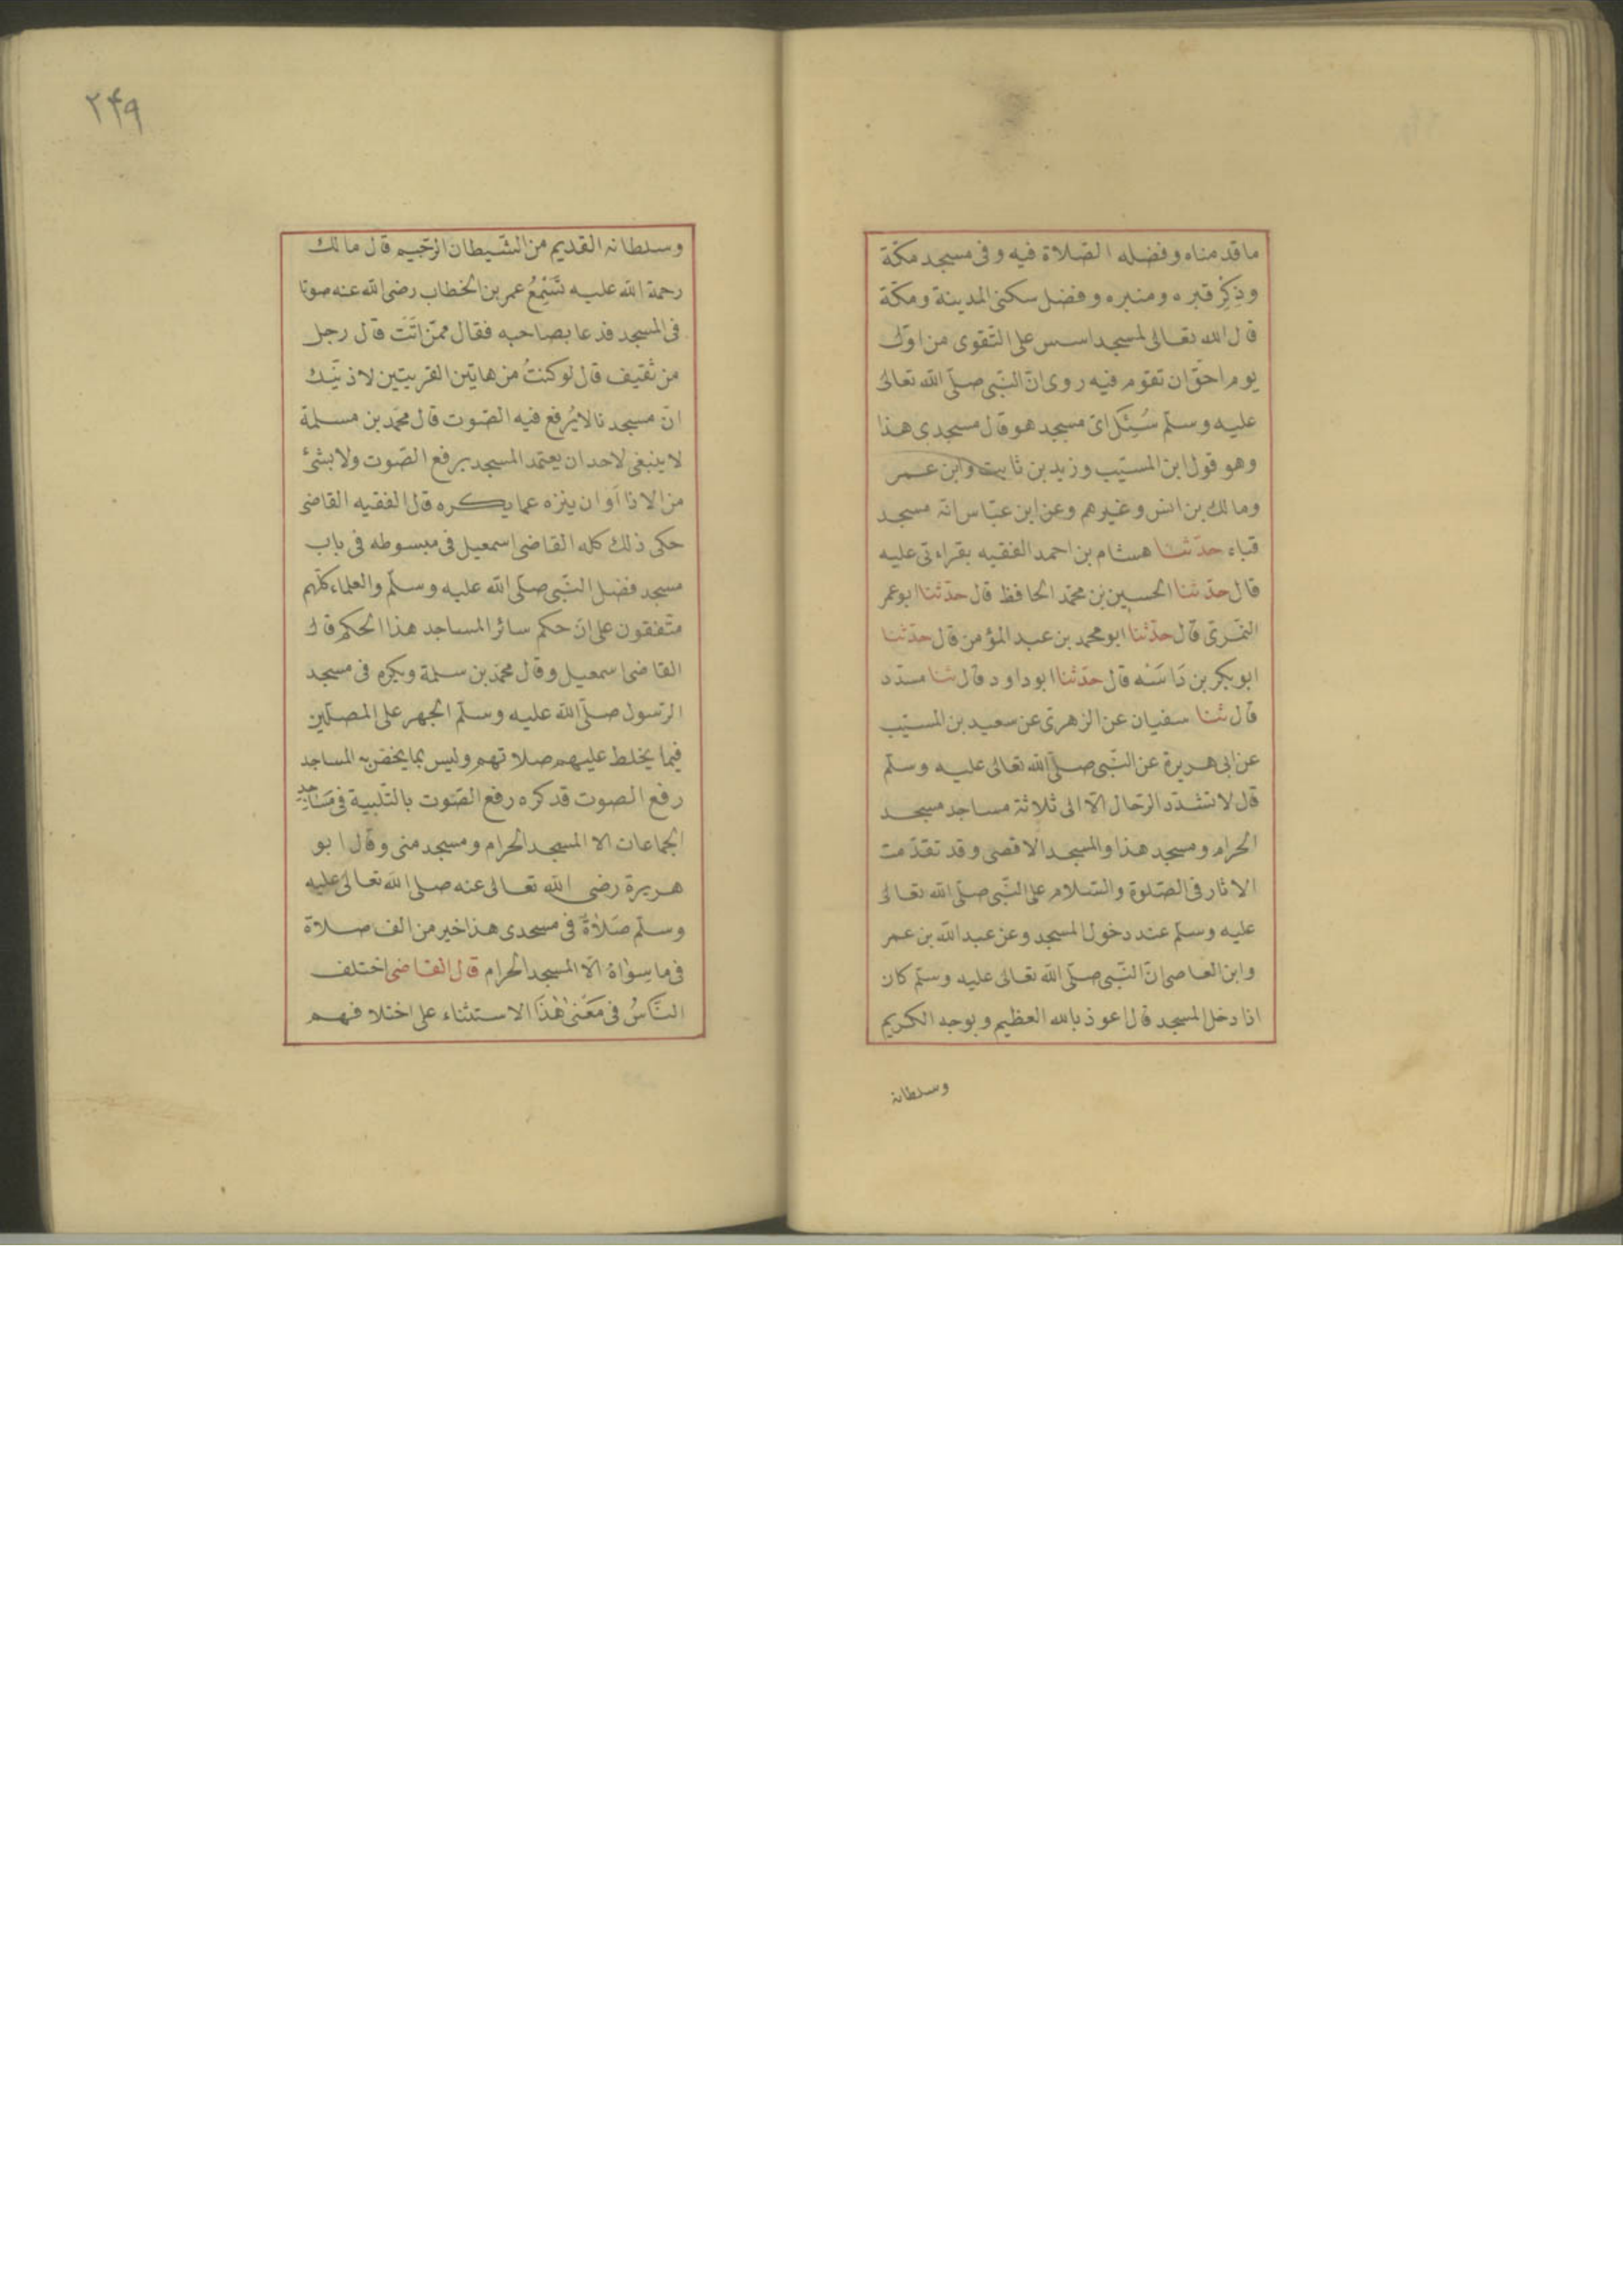 ما قدمناه وفضله الصّلاة فيه وفى مسجد مكّة
وذِكرِ قبره ومنبره وفضل سكنى المدينة ومكّة
قال الله تعالى لمسجد اسس على التّقوى من اوّل
يوم احقّ ان تقوم فيه روى انّ النّبى صلّى الله تعالى
عليه وسلّم سُئِلَ اىّ مسجد هو قال مسجدى هذا
وهو قول ابن المسيّب وزيد بن ثابت وابن عمر
ومالك بن انس وغيرهم وعن ابن عبّاس انه مسجد
قباء حدّثنا هشام بن احمد الفقيه بقراءتى عليه
قال حدّثنا الحسين بن محمّد الحافظ قال حدّثنا ابو عمر
النّمرى قال حدّثنا ابو محمد بن عبد المؤمن قال حدّثنا
ابو بكر بن دَاسَنه قال حدّثنا ابو داود قال ثنا مسدّد
قال ثنا سفيان عن الزهرى عن سعيد بن المسيّب
عن ابى هريرة عن النّبى صلّى الله تعالى عليه وسلّم
قال لا تشدّد الرّحال الّا الى ثلاثة مساجد مسجد
الحرام ومسجد هذا والمسجد الاقصى وقد تقدّمت
الاثار فى الصّلوة والسّلام على النّبى صلّى الله تعالى
عليه وسلّم عند دخول المسجد وعن عبد الله بن عمر
وابن العاصى انّ النّبى صلّى الله تعالى عليه وسلّم كان
اذا دخل المسجد قال اعوذ بالله العظيم وبوجه الكريم
وسلطانه
٢۴٩
وسلطانه القديم من الشّيطان الرّجيم قال مالك
رحمة الله عليه سَمِعَ عمر بن الخطاب رضى الله عنه صوتا
فى المسجد فدعا بصاحبه فقال ممّن انَتَ قال رجل
من ثقيف قال لو كنتُ من هاتين القريتين لاذنّيك
انّ مسجدنا لا يُرفع فيه الصّوت قال محمّد بن مسلمة
لا ينبغى لاحد ان يعتمد المسجد برفع الصّوت ولا بشئ
من الاذا اَو ان ينزه عما يكره قال الفقيه القاضى
حكى ذلك كله القاضى اسمعيل فى مبسوطه فى باب
مسجد فضل النّبى صلّى الله عليه وسلّم والعلماء كلّهم
متّفقون على انّ حكم سائر المساجد هذا الحكم قال
القاضى اسمعيل وقال محمّد بن سلمة ويكره فى مسجد
الرّسول صلّى الله عليه وسلّم الجهر على المصلّين
فيما يخلط عليهم صلاتهم وليس بما يخصّ به المساجد
رفع الصوت قد كره رفع الصّوت بالتّلبية فى مَسَاجد
الجماعات الا المسجد الحرام ومسجد منى وقال ابو
هريرة رضى الله تعالى عنه صلى الله تعالى عليه
وسلّم صَلَاةٌ فى مسجدى هذا خير من الف صلاة
فى ما سِوَاة الّا المسجد الحرام قال القاضى اختلف
النَّاسُ فى مَعْنىٰ هٰذَا الاستثناء على اختلافهم